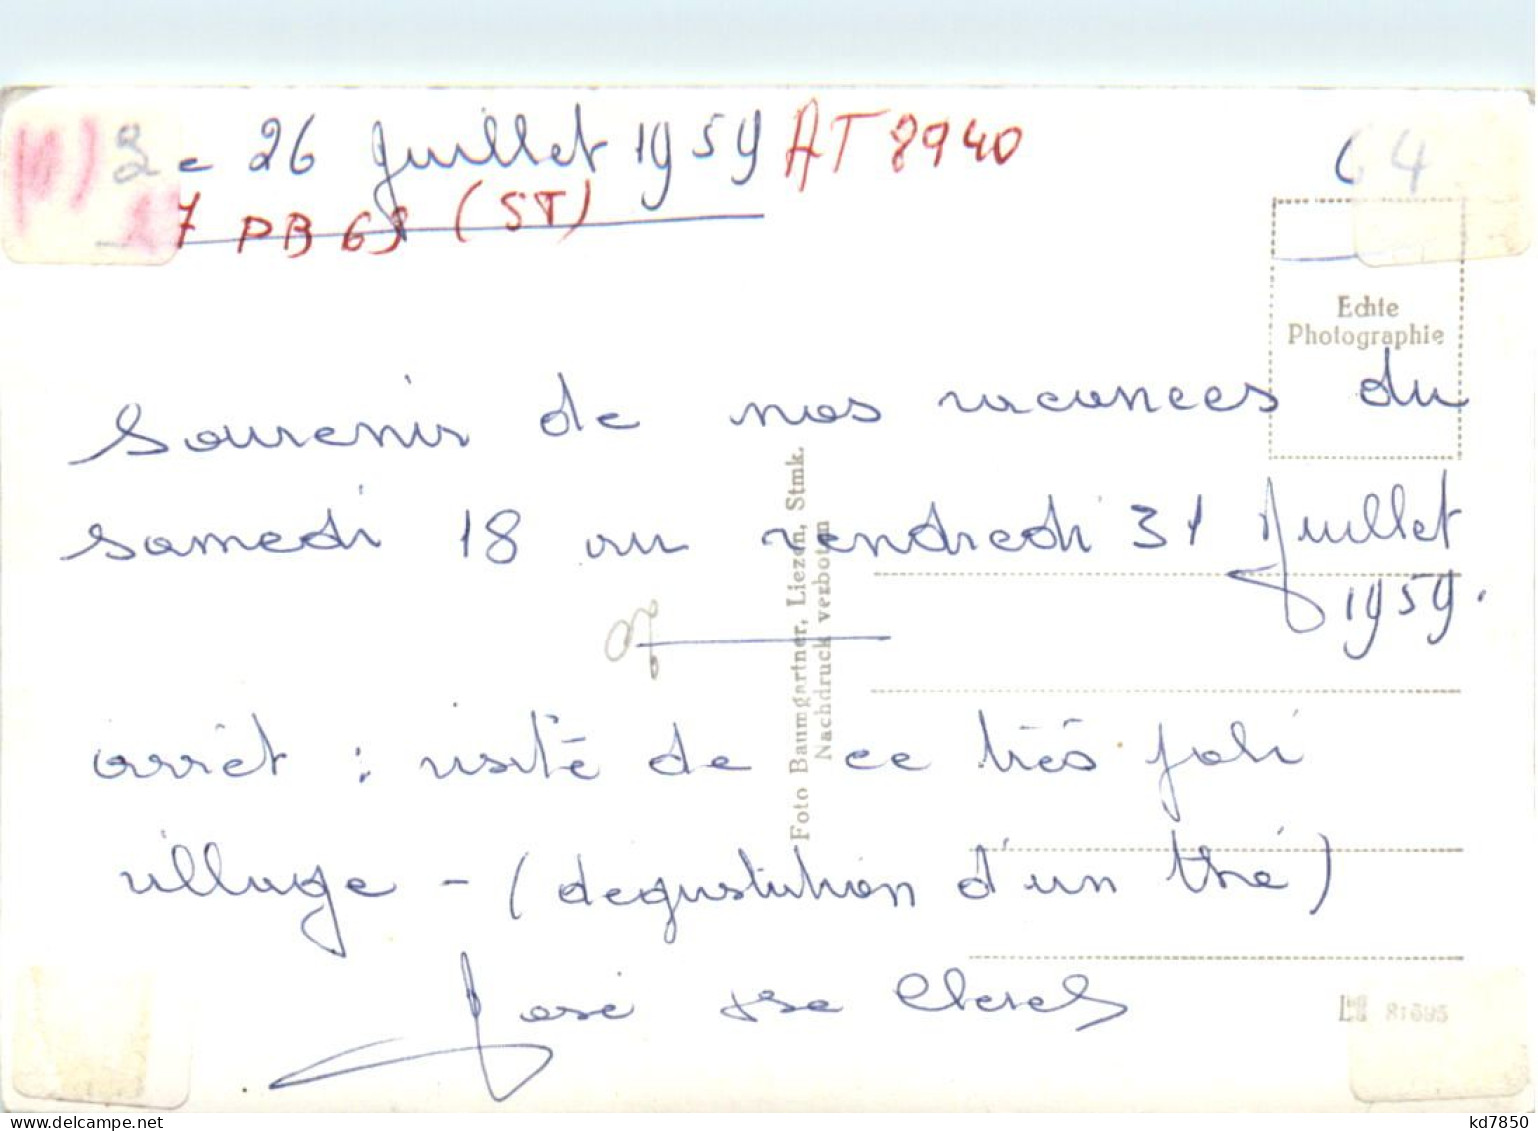 Le 26 Juillet 1959 AT 8940
7 PB 68 (ST)
64
Echte
Photographie
Souvenir de nos vacances du
samedi 18 au vendredi 31 Juillet
1959.
arrêt : visite de ce très joli
village - (degustation d'un thé)
José
Foto Baumgartner, Liezen, Stmk.
Nachdruck verboten
81695
www.delcampe.net
kd7850